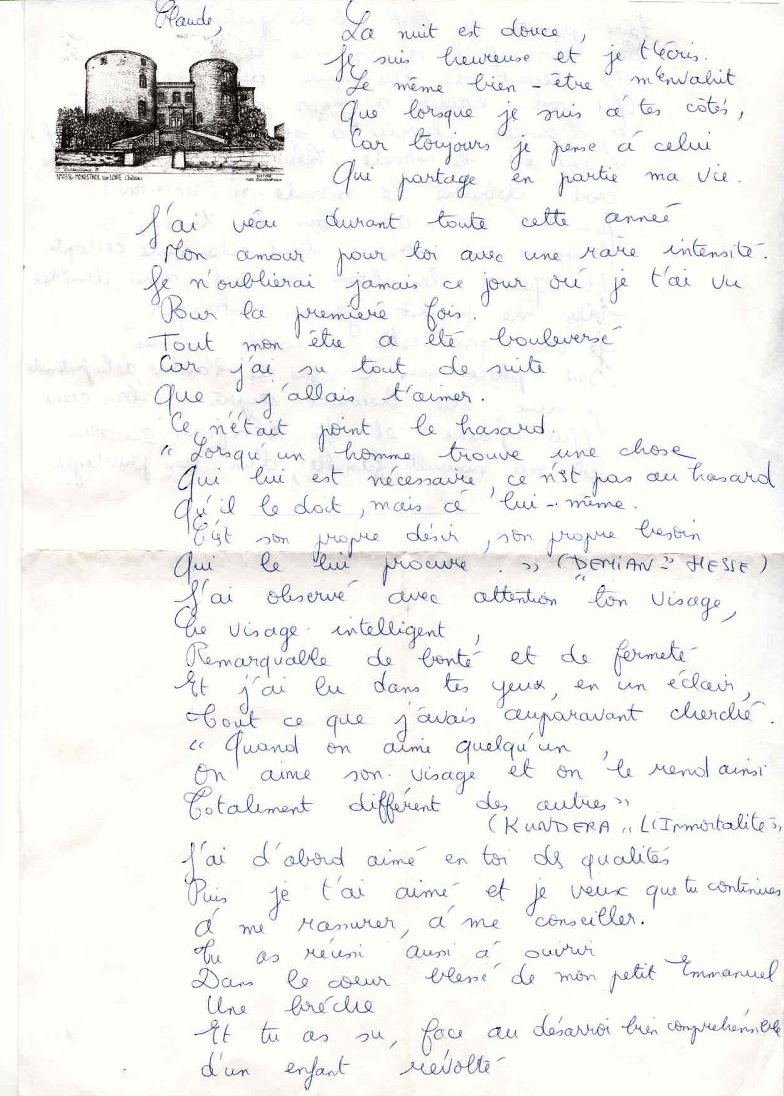 Claude,
La nuit est douce,
Je suis heureuse et je t'écris.
Le même bien-être m'envahit
Que lorsque je suis à tes côtés,
Car toujours je pense à celui
Qui partage en partie ma vie.
MONISTROL sur LOIRE (Château)
J'ai vécu durant toute cette année
Mon amour pour toi avec une rare intensité.
Je n'oublierai jamais ce jour où je t'ai vu
Pour la première fois.
Tout mon être a été bouleversé
Car j'ai su tout de suite
Que j'allais t'aimer.
Ce n'était point le hasard.
"Lorsqu'un homme trouve une chose
Qui lui est nécessaire, ce n'est pas au hasard
Qu'il le doit, mais à lui-même.
C'est son propre désir, son propre besoin
Qui le lui procure." (DEMIAN" HESSE)
J'ai observé avec attention ton visage,
Ce visage intelligent,
Remarquable de bonté et de fermeté
Et j'ai lu dans tes yeux, en un éclair,
Tout ce que j'avais auparavant cherché.
"Quand on aime quelqu'un,
On aime son visage et on le rend ainsi
Totalement différent des autres"
(KUNDERA "L'Immortalité"
J'ai d'abord aimé en toi des qualités
Puis je t'ai aimé et je veux que tu continues
à me rassurer, à me conseiller.
Tu as réussi aussi à ouvrir
Dans le coeur blessé de mon petit Emmanuel
Une brèche
Et tu as su, face au désarroi bien compréhensible
d'un enfant révolté